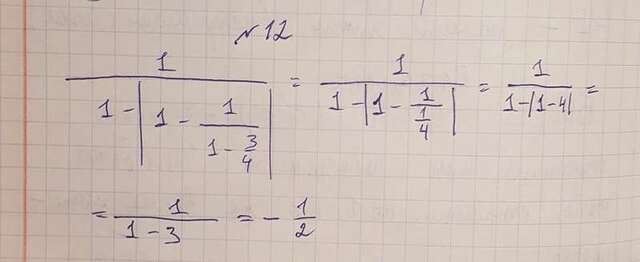 №12
1/(1-|1-1/(1-3/4)|) = 1/(1-|1-1/(1/4)|) = 1/(1-|1-4|) =
= 1/(1-3) = -1/2